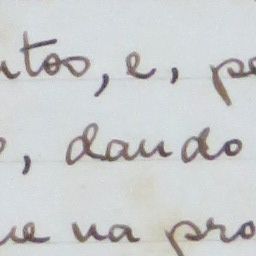 ntos, e, pe
, dando
ue na pro